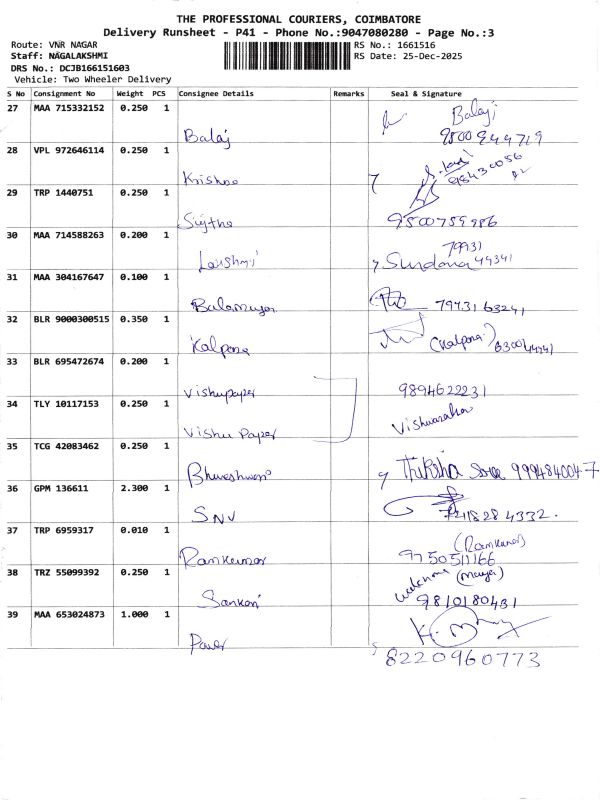 THE PROFESSIONAL COURIERS, COIMBATORE
Delivery Runsheet - P41 - Phone No.:9047080280 - Page No.:3
Route: VNR NAGAR
RS No.: 1661516
Staff: NAGALAKSHMI
RS Date: 25-Dec-2025
DRS No.: DCJB166151603
Vehicle: Two Wheeler Delivery
S No Consignment No Weight PCS Consignee Details Remarks Seal & Signature
27 MAA 715332152 0.250 1
Balaji
Balaji
9500944719
28 VPL 972646114 0.250 1
Krishna
29 TRP 1440751 0.250 1
9500759986
30 MAA 714588263 0.200 1
Lakshmi
79931
Sundana 44341
31 MAA 304167647 0.100 1
Balamurugan
7973163241
32 BLR 9000300515 0.350 1
Kalpana
(Kalpana)
33 BLR 695472674 0.200 1
Vishupaper
9894622231
34 TLY 10117153 0.250 1
Vishu Paper
35 TCG 42083462 0.250 1
Bhuveshwari
Thiksha Store 9994840047
36 GPM 136611 2.300 1
SNV
7418284332.
37 TRP 6959317 0.010 1
Ramkumar
(Ramkumar)
9750511166
38 TRZ 55099392 0.250 1
Sankari
9810180431
39 MAA 653024873 1.000 1
8220960773